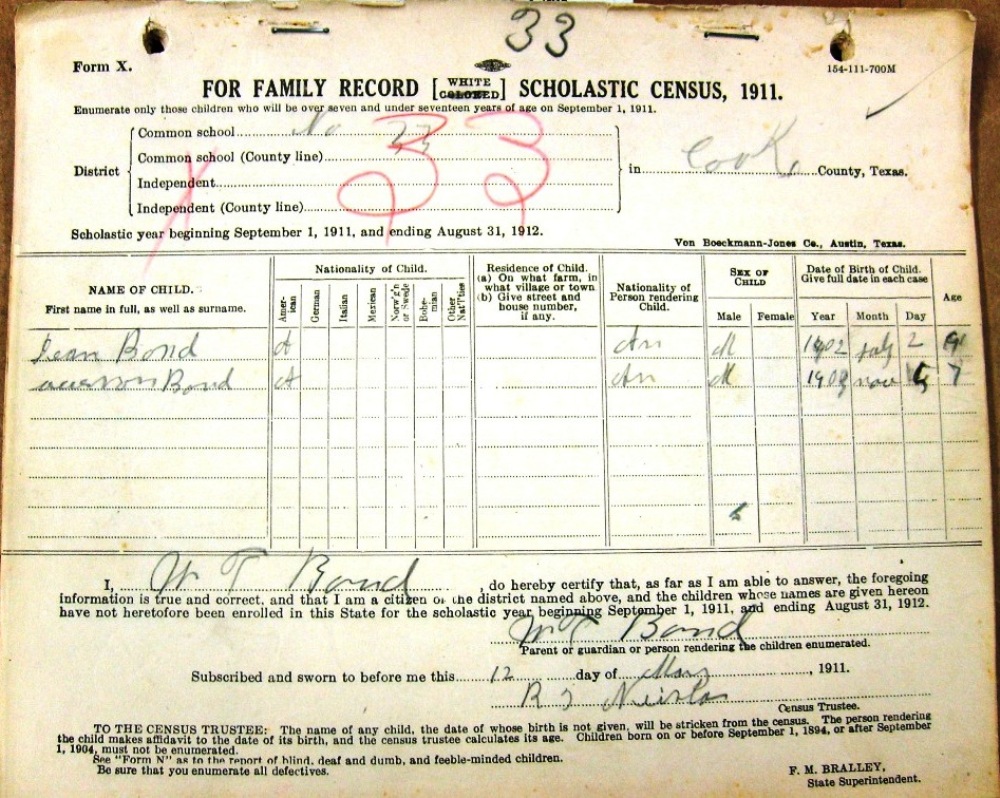 33
Form X.
154-111-700M
FOR FAMILY RECORD [WHITE COLORED] SCHOLASTIC CENSUS, 1911.
Enumerate only those children who will be over seven and under seventeen years of age on September 1, 1911.
District
Common school No 33
Common school (County line)
Independent
Independent (County line)
33
in Cook County, Texas.
Scholastic year beginning September 1, 1911, and ending August 31, 1912.
Von Boeckmann-Jones Co., Austin, Texas.
NAME OF CHILD.
First name in full, as well as surname.
Nationality of Child.
American German Italian Mexican Norw'g'n or Swede Bohemian Other Nat'l'ties
Residence of Child.
(a) On what farm, in what village or town
(b) Give street and house number, if any.
Nationality of Person rendering Child.
SEX OF CHILD
Male Female
Date of Birth of Child.
Give full date in each case
Year Month Day
Age
Bond A Am M 1902 July 2 9
Bond A Am M nov 7
I, W T Bond, do hereby certify that, as far as I am able to answer, the foregoing
information is true and correct, and that I am a citizen of the district named above, and the children whose names are given hereon
have not heretofore been enrolled in this State for the scholastic year beginning September 1, 1911, and ending August 31, 1912.
W T Bond
Parent or guardian or person rendering the children enumerated.
Subscribed and sworn to before me this 12 day of , 1911.
R
Census Trustee.
TO THE CENSUS TRUSTEE: The name of any child, the date of whose birth is not given, will be stricken from the census. The person rendering
the child makes affidavit to the date of its birth, and the census trustee calculates its age. Children born on or before September 1, 1894, or after September
1, 1904, must not be enumerated.
See "Form N" as to the report of blind, deaf and dumb, and feeble-minded children.
Be sure that you enumerate all defectives.
F. M. BRALLEY,
State Superintendent.